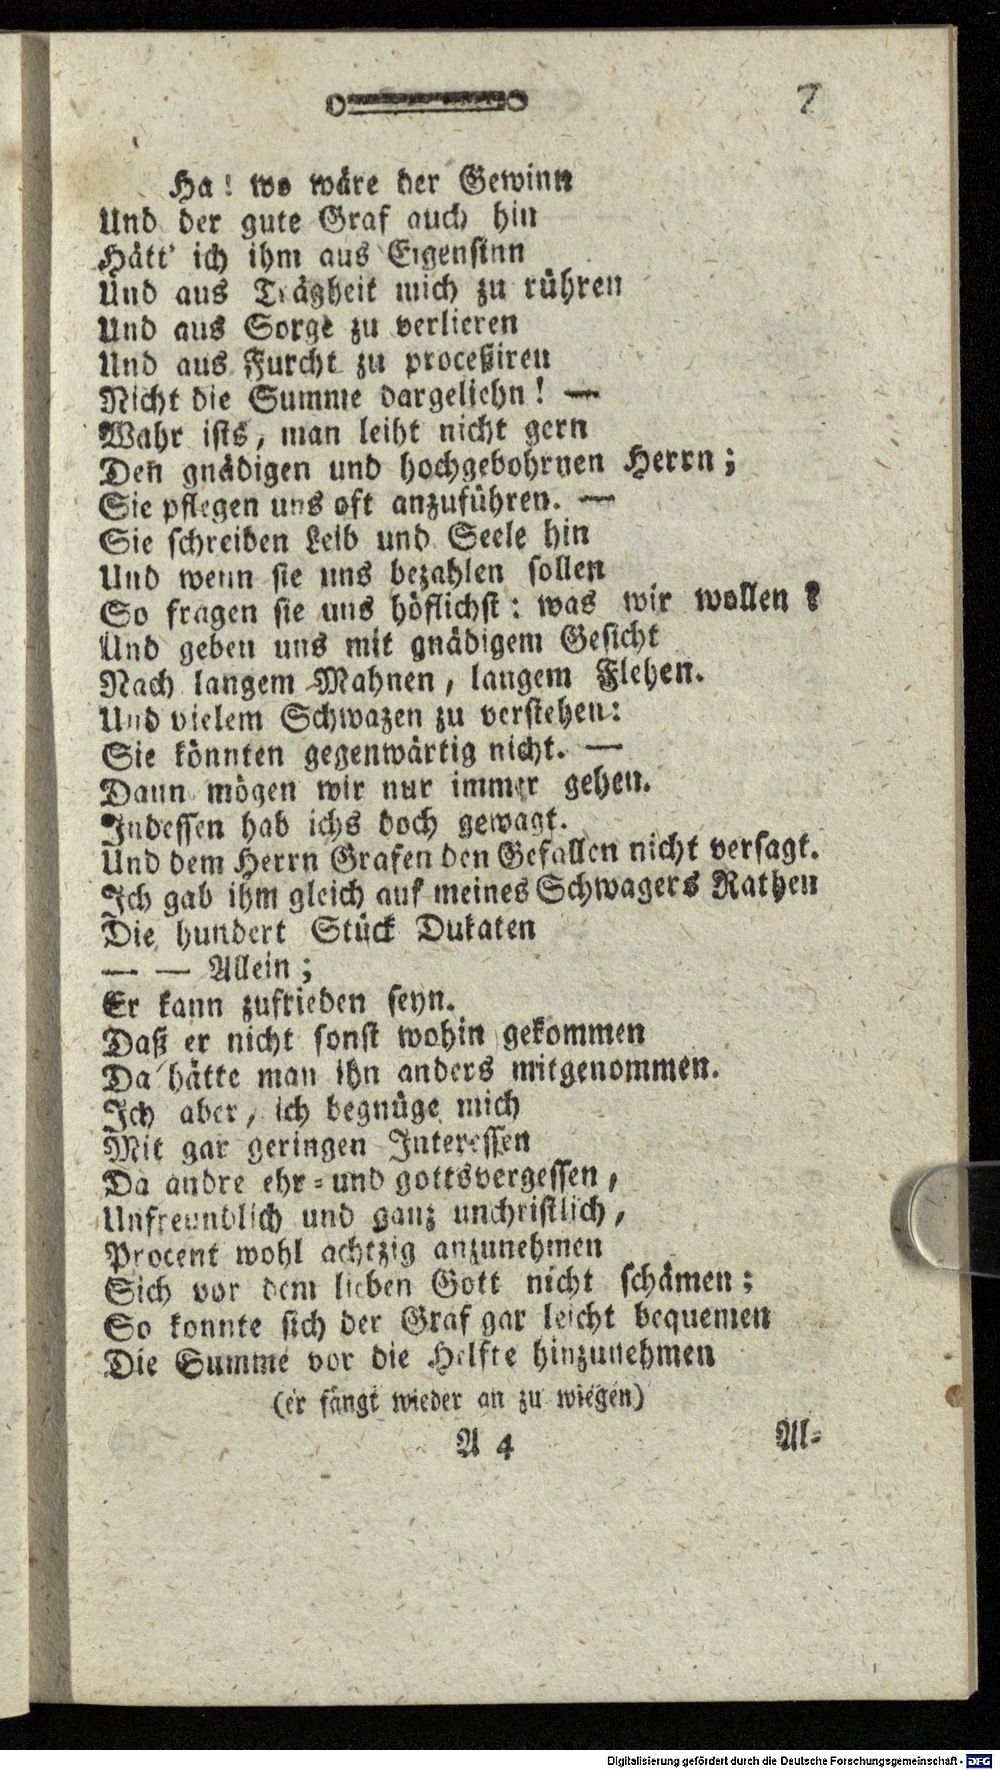 7
Ha! wo wäre der Gewinn
Und der gute Graf auch hin
Hätt' ich ihm aus Eigensinn
Und aus Trägheit mich zu rühren
Und aus Sorge zu verlieren
Und aus Furcht zu proceßiren
Nicht die Summe dargeliehn! —
Wahr ists, man leiht nicht gern
Den gnädigen und hochgebohrnen Herrn;
Sie pflegen uns oft anzuführen. —
Sie schreiben Leib und Seele hin
Und wenn sie uns bezahlen sollen
So fragen sie uns höflichst: was wir wollen?
Und geben uns mit gnädigem Gesicht
Nach langem Mahnen, langem Flehen.
Und vielem Schwazen zu verstehen:
Sie könnten gegenwärtig nicht. —
Dann mögen wir nur immer gehen.
Indessen hab ichs doch gewagt.
Und dem Herrn Grafen den Gefallen nicht versagt.
Ich gab ihm gleich auf meines Schwagers Rathen
Die hundert Stück Dukaten
— — Allein;
Er kann zufrieden seyn.
Daß er nicht sonst wohin gekommen
Da hätte man ihn anders mitgenommen.
Ich aber, ich begnüge mich
Mit gar geringen Interessen
Da andre ehr-und gottsvergessen,
Unfreundlich und ganz unchristlich,
Procent wohl achtzig anzunehmen
Sich vor dem lieben Gott nicht schämen;
So konnte sich der Graf gar leicht bequemen
Die Summe vor die Helfte hinzunehmen
(er fängt wieder an zu wiegen)
A 4 Al-
Digitalisierung gefördert durch die Deutsche Forschungsgemeinschaft - DFG